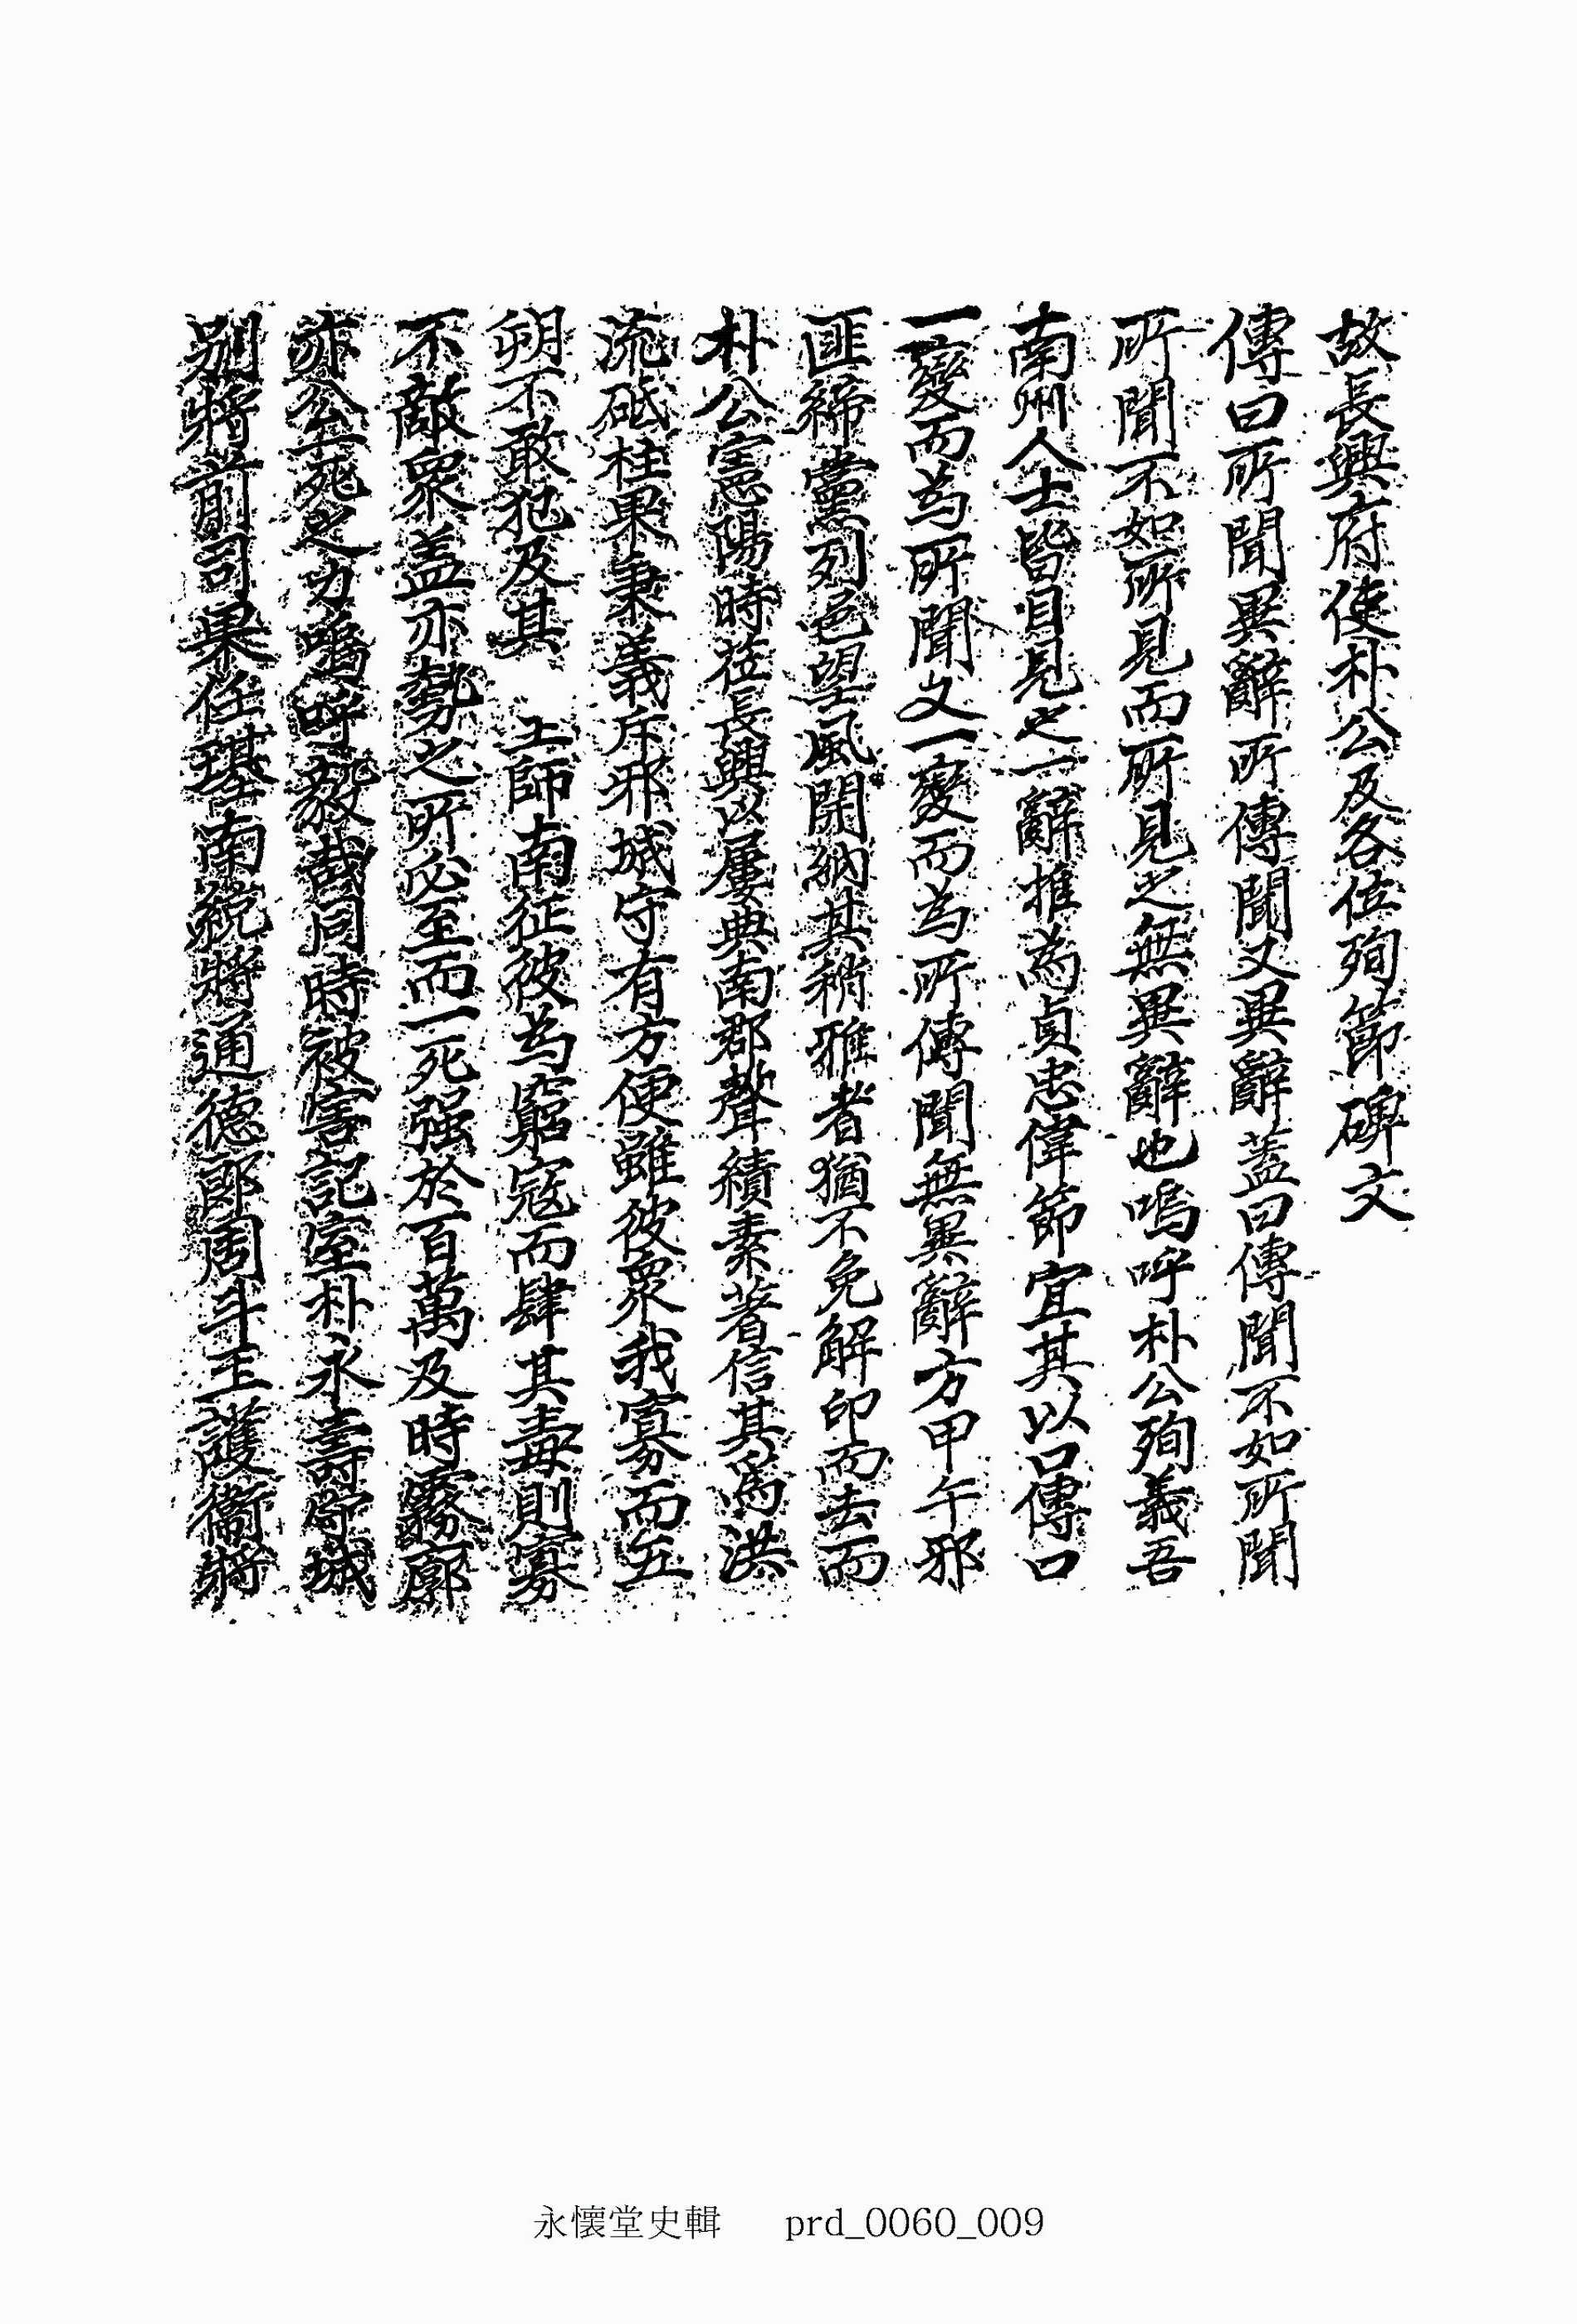 故長興府使朴公及各位殉節碑文
傳曰所聞異辭所傳聞又異辭蓋曰傳聞不如所聞
所聞不如所見而所見之無異辭也嗚呼朴公殉義吾
南州人士皆目見之一辭推為貞忠偉節宜其以口傳口
一變而為所聞又一變而為所傳聞無異辭方甲午邪
匪締黨列邑望風開納其稍雅者猶不免解印而去而
朴公憲陽時莅長興以屢典南郡聲績素著信其為洪
流砥柱果秉義斥邪城守有方便雖彼衆我寡而五
朔不敢犯及其 王師南征彼為窮寇而肆其毒則寡
不敵衆盖亦勢之所必至而一死强於百萬及時霧廓
亦公死之力嗚呼毅哉同時被害記室朴永壽守城
別將前司果任璂南統將通德郎周斗玉護衛將
永懷堂史輯 prd_0060_009